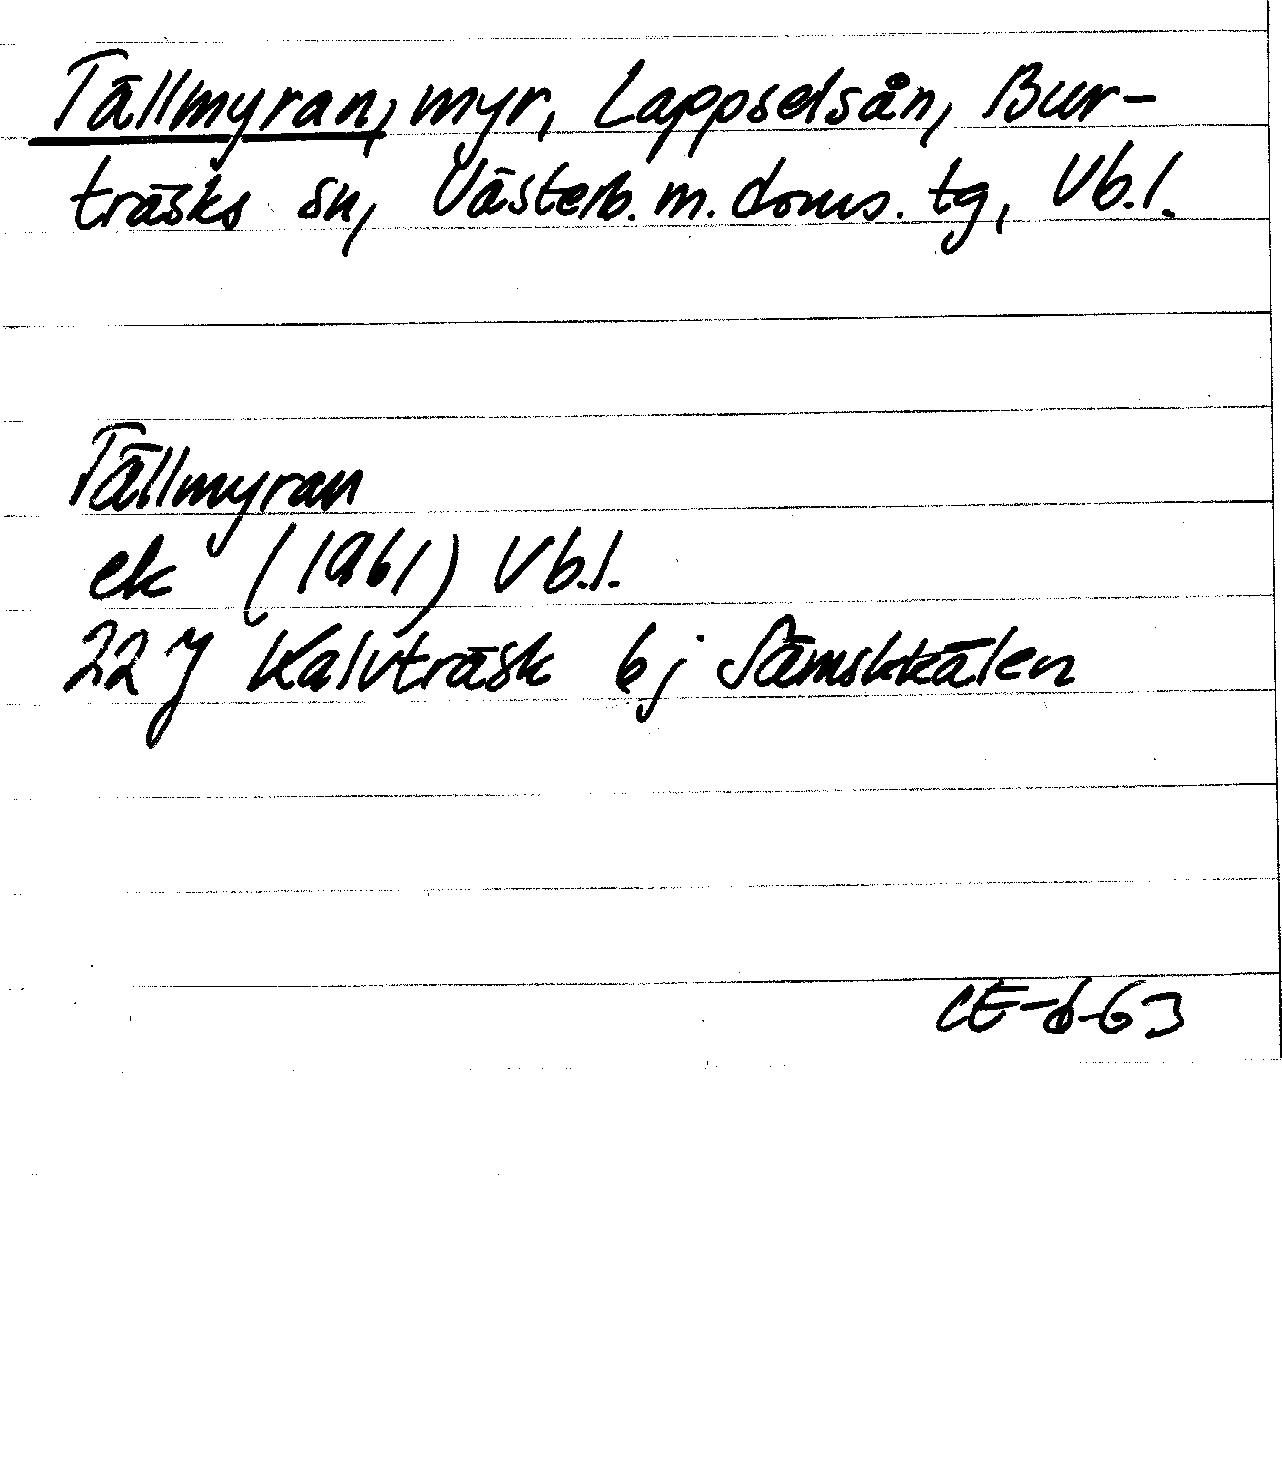 Tällmyran, myr, Lappselsån, Bur-
träsks sn, Västerb. m. doms. tg, Vb.l.
Tällmyran
ek (1961) Vb.l.
22 J Kalvträsk 6j Sämskkälen
CE-6-63